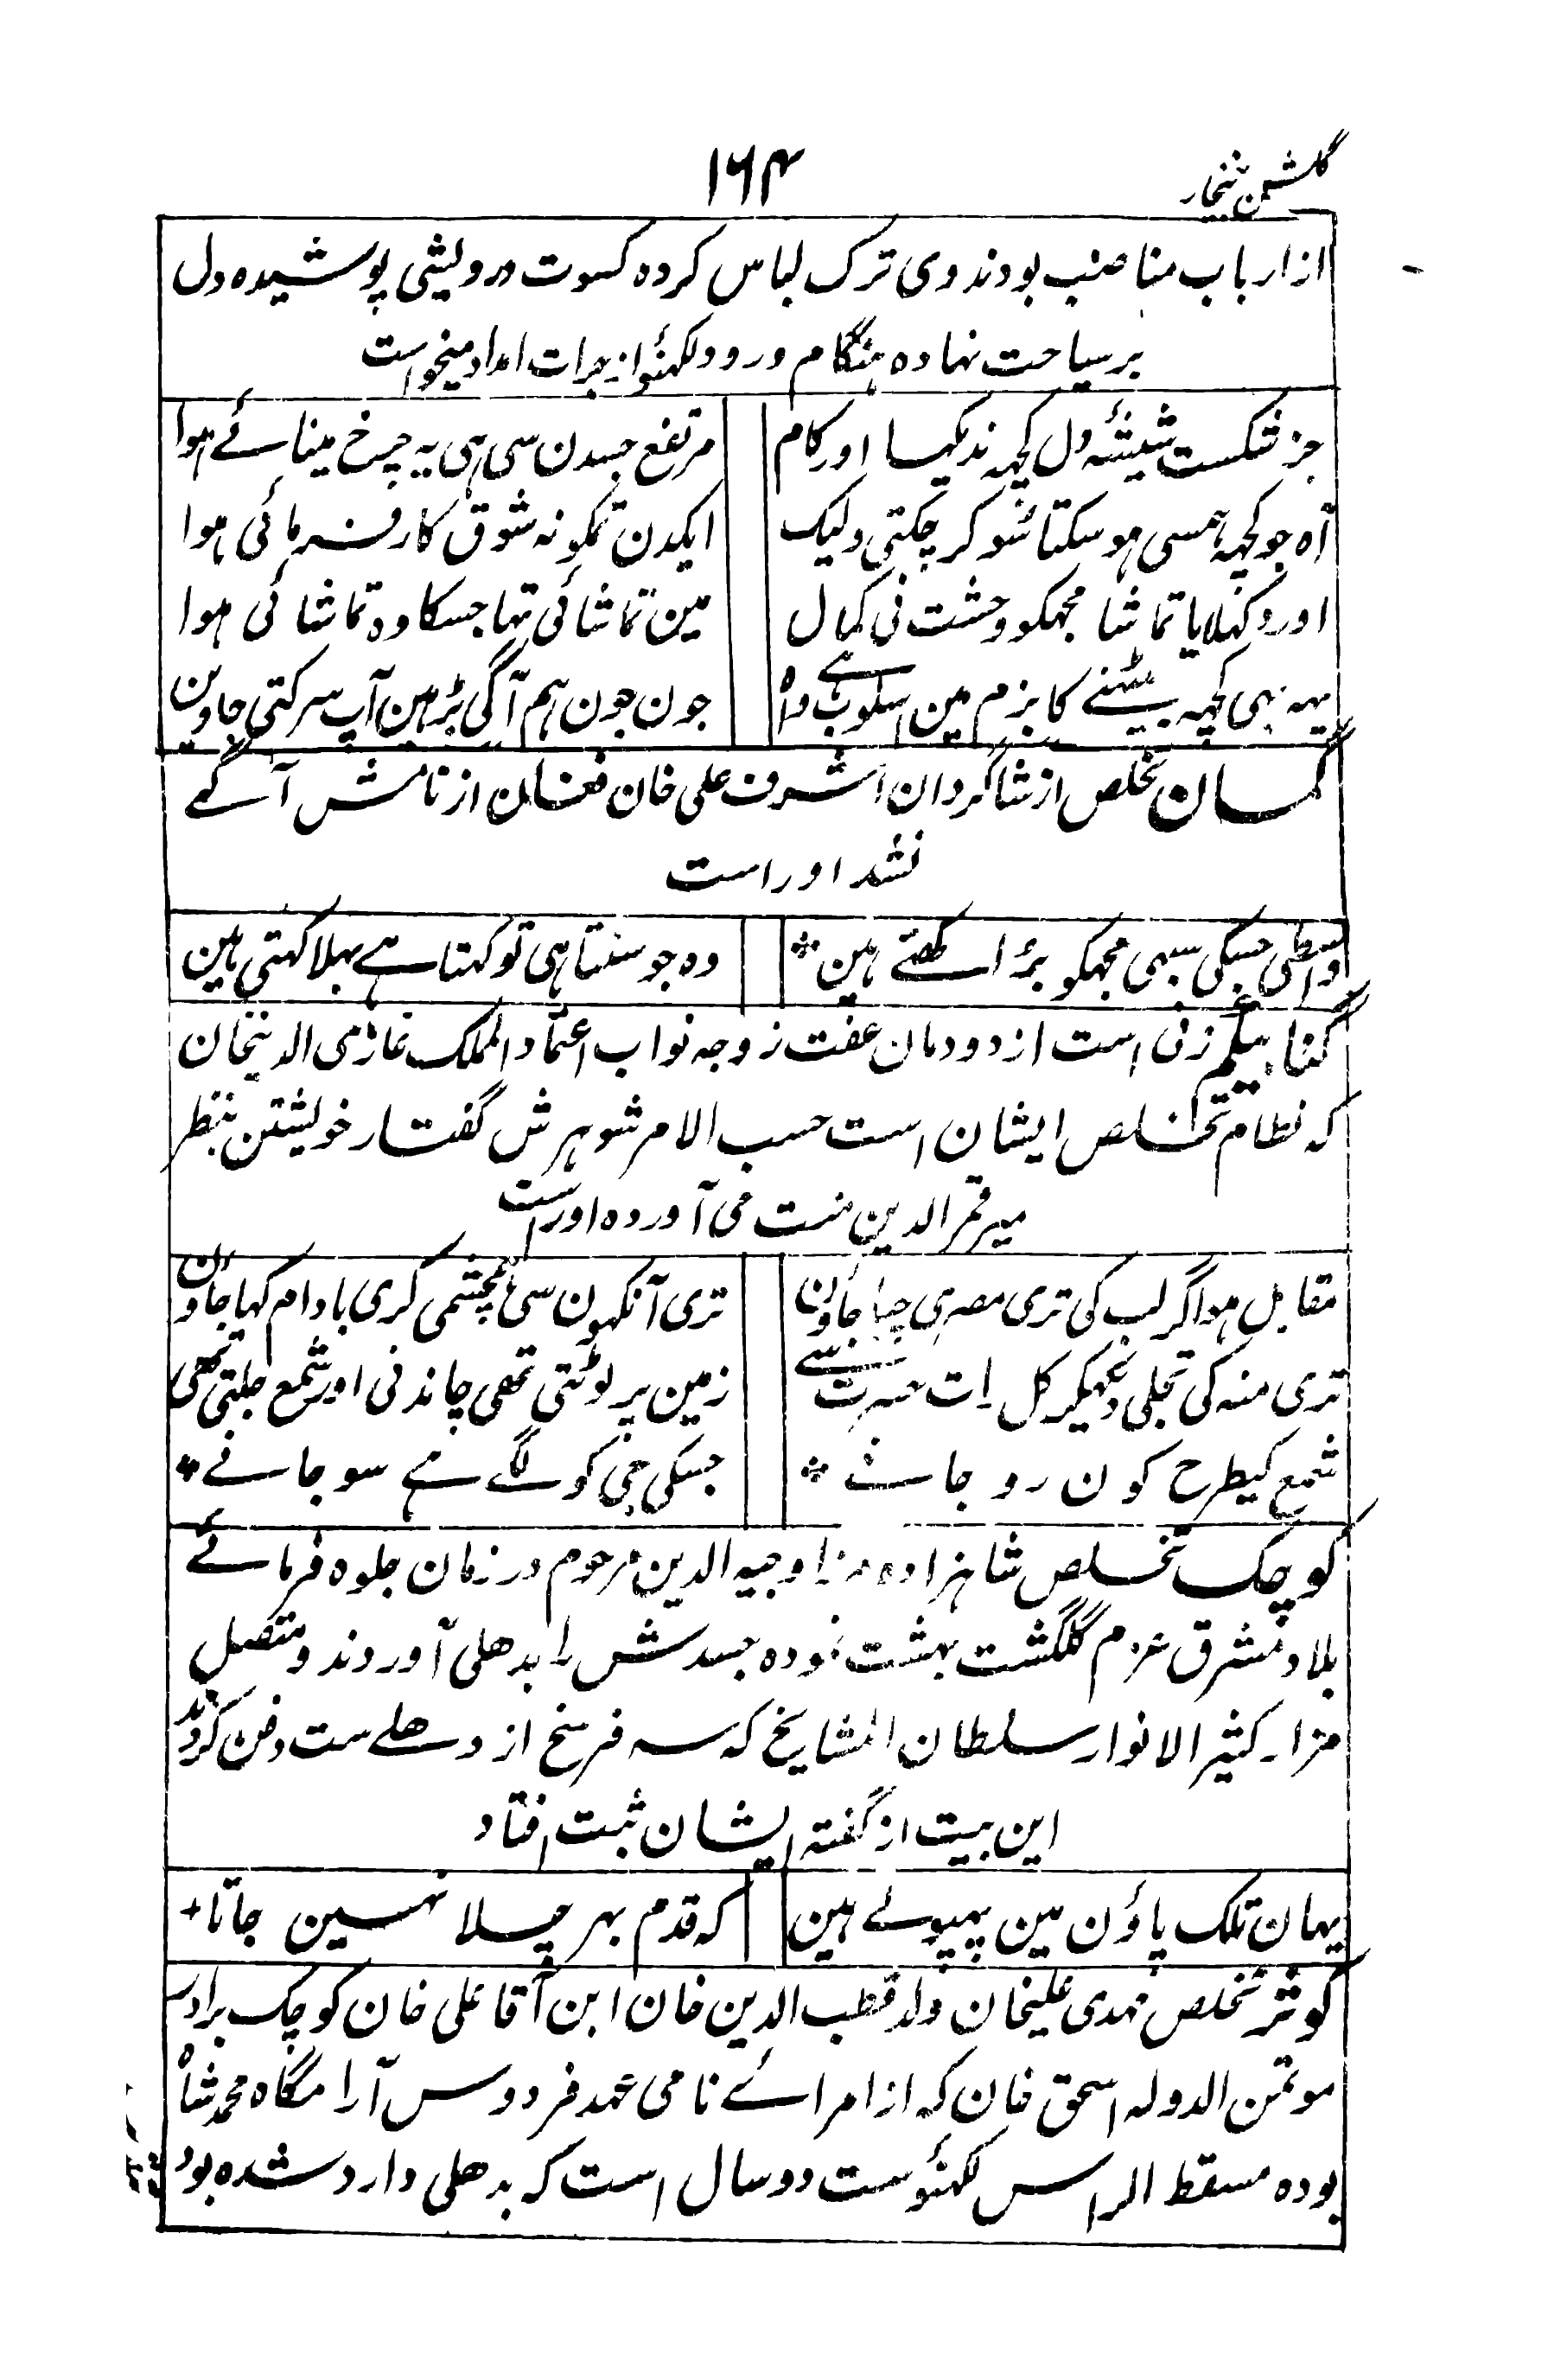 گلشن بیخار
۱۶۴
از ارباب مناصب بودند وی ترک لباس کرده کسوت درویشی پوشیده دل
بر سیاحت نهاده هنگام ورود لکهنؤ از جرات امداد میخواست
جز شکست شیشۂ دل کچهه ندیکها اور کام
مرتفع جسدن سی ہی یہ چرخ مینائے ہوا
آه جو کچهه ہمسی ہو سکتا سو کر چکتی ولیک
ایکدن تمکو نہ شوق کارفرمائی ہوا
اور دکهلایا تماشا مجهکو وحشت نی کمال
مین تماشائی تها جسکا وه تماشائی ہوا
یہہ بهی کچهه بیٹهنے کا بزم مین اسلوب ہے واه
جون جون ہم آگی بڑہین آپ سرکتی جاوین
گمسان تخلص از شاگردان اشرف علی خان فغان از نامش آگہے
نشد اوراست
واسطی جسکی سبهی مجهکو برا کهتے ہین
وه جو سنتا ہی تو کہتا ہے بهلا کہتی ہین
گنا بیگم زنی است از دودمان عفت زوجہ نواب اعتماد الملک غازی الدینخان
که نظام تخلص ایشان است حسب الامر شوہرش گفتار خویشتن بنظر
میر قمر الدین منت می آورده اوراست
مقابل ہو اگر لب کی تری مصری چبا جاوُن
تری آنکہون سی ہمچشمی کری بادام کہا جاوُن
تری منہ کی تجلی دیکہیکر کل رات حیرت سے
زمین پر لوٹتی تهی چاندنی اور شمع جلتی تهی
شمع کیطرح کون رو جانے
جسکی جی کو لگے ہے سو جانے
کوچک تخلص شاہزاده مرزا وجیہ الدین مرحوم در زمان جلوه فرمائے
بلاد مشرق عزم گلگشت بہشت نموده جسدش را بدهلی آوردند و متصل
مزار کثیر الانوار سلطان المشایخ که سہ فرسخ از دهلے ست دفن کردند
این بیت از گفتہ ایشان ثبت افتاد
یہان تلک پاؤن مین پہپولے ہین
که قدم بهر چلا نہین جاتا
کوثر تخلص مہدی علیخان ولد قطب الدین خان ابن آقا علی خان کوچک برادر
موتمن الدولہ اسحق خان که از امرائے نامی عہد فردوس آرامگاه محمد شاه
بوده مسقط الراس لکهنؤست دو سال است که بدهلی وارد شده بود